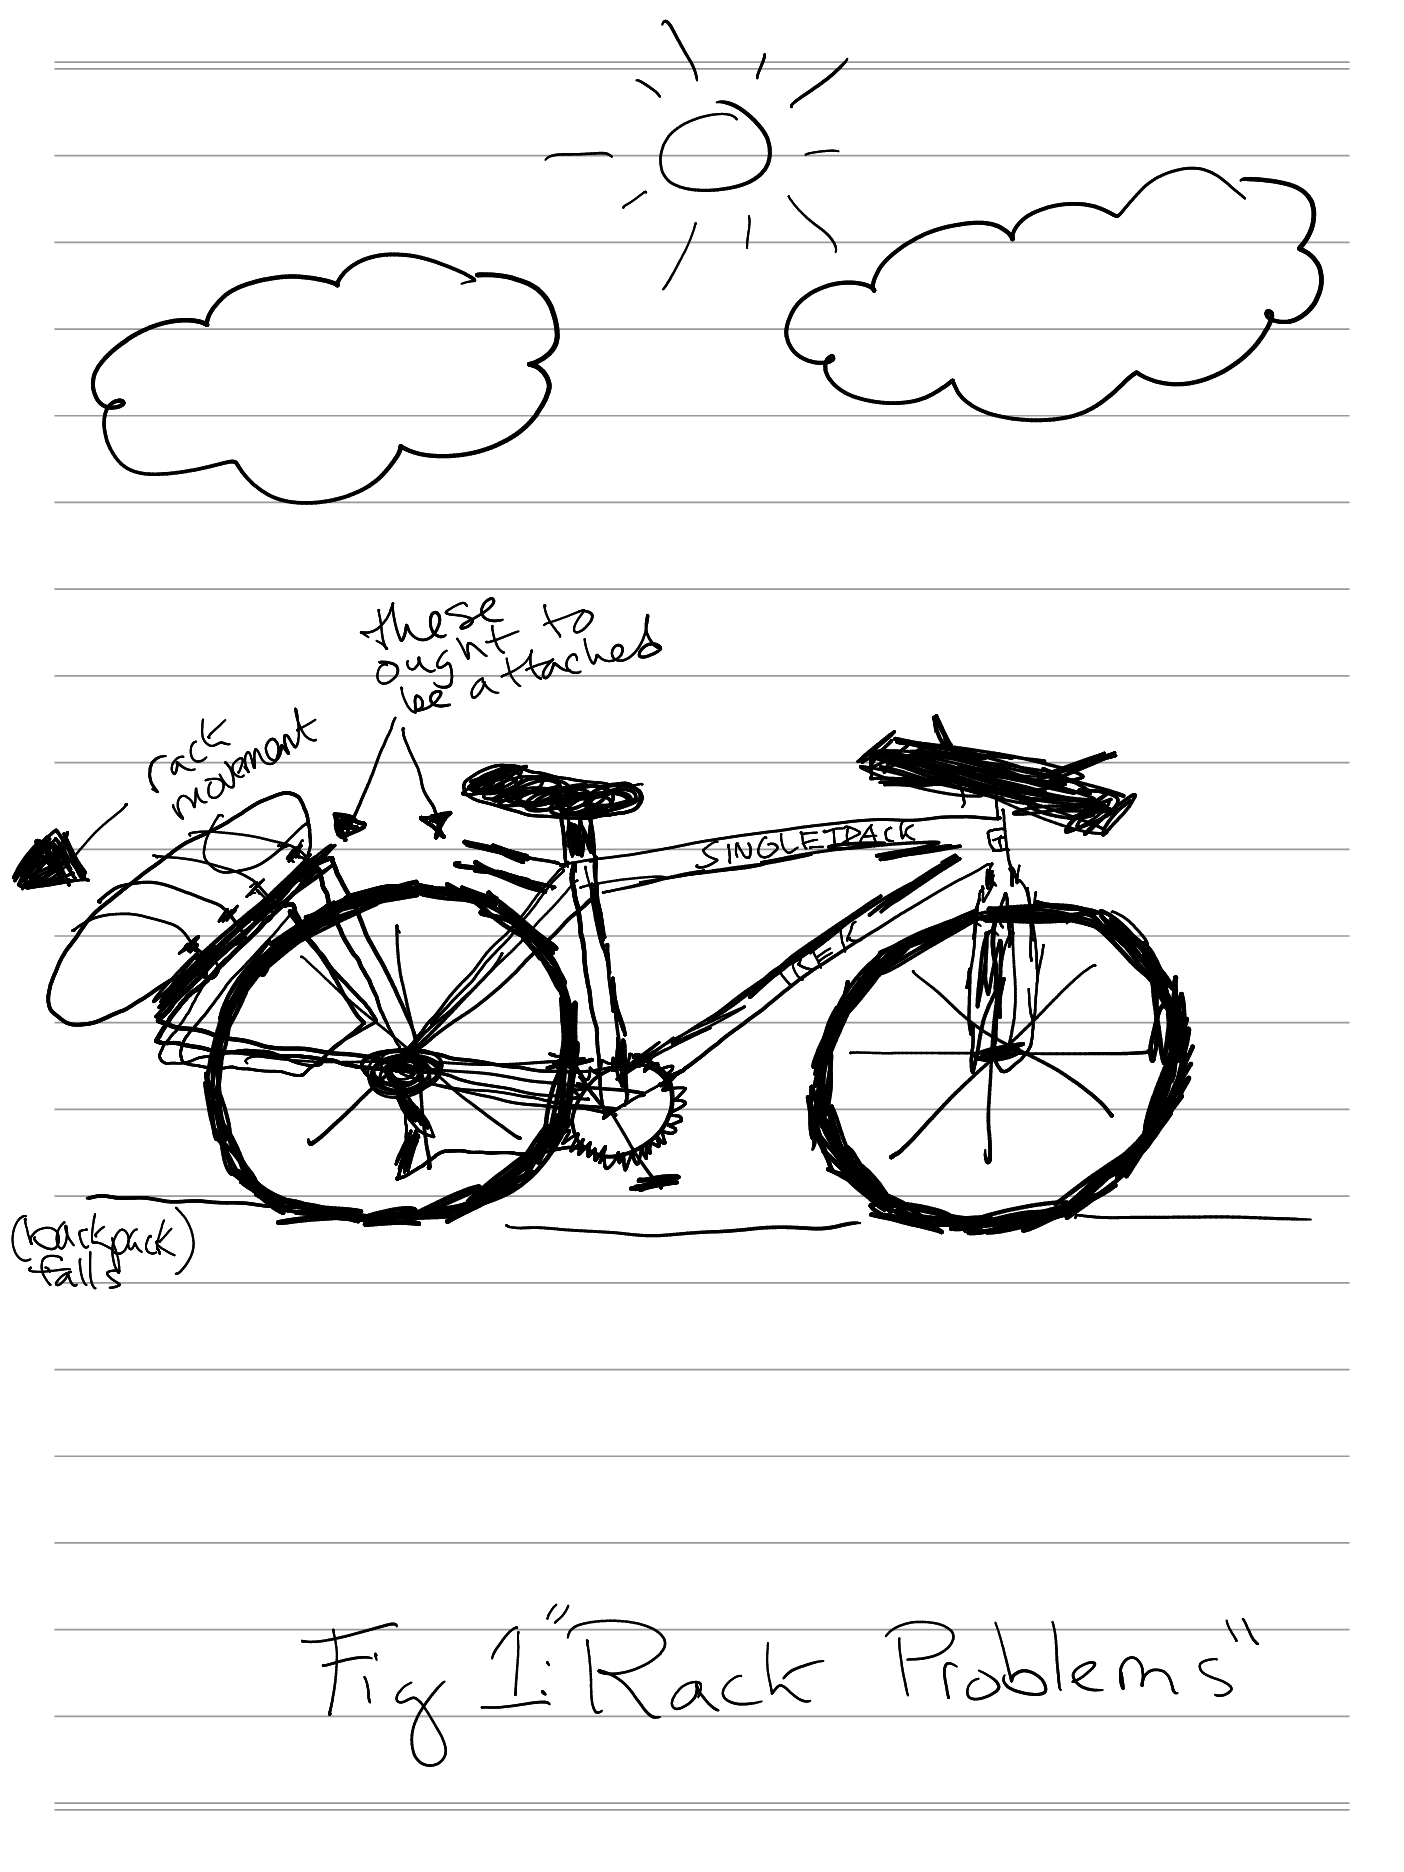 these
ought to
be attached
rack
movement
SINGLETRACK
TREK
(backpack)
falls
Fig 1: "Rack Problems"